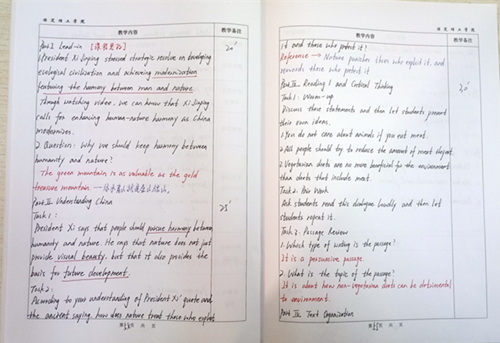 教学内容
教学备注
Part I Lead-in
20'
1. President Xi Jinping stressed strategic resolve on
ecological civilization and achieving modernization
featuring the harmony between man and nature.
Through watching video, we can know that Xi Jinping
calls for enhancing human-nature harmony as China
modernizes.
2. Question: Why we should keep harmony between
humanity and nature?
The green mountain is as valuable as the gold
treasure mountain
Part II Understanding China
25'
Task 1:
President Xi says that people should pursue harmony between
humanity and nature. He says that nature does not just
provide visual beauty, but that it also provides the
basis for future development.
Task 2:
According to your understanding of President Xi' quote and
the ancient saying, how does nature treat those who exploit
教学内容
教学备注
it and those who protect it?
Reference → Nature punishes those who exploit it, and
rewards those who protect it
Part III Reading 1 and Critical Thinking
Task 1: Warm-up
Discuss these statements and then let students present
their own ideas.
1. You do not care about animals if you eat meat.
2. All people should try to reduce the amount of meat they eat.
3. Vegetarian diets are no more beneficial for the environment
than diets that include meat.
Task 2: Pair Work
Ask students read this dialogue loudly and then let
students repeat it.
Task 3: Passage Review
1. Which type of writing is the passage?
It is a persuasive passage.
2. What is the topic of the passage?
It is about how non-vegetarian diets can be detrimental
to environment.
Part IV Text Organization